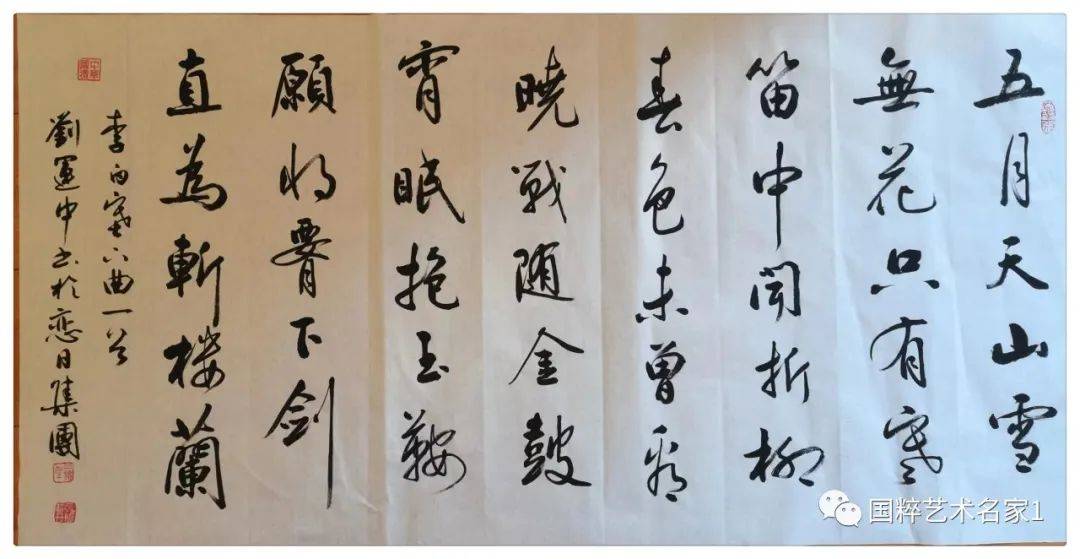 五月天山雪
無花只有寒
笛中聞折柳
春色未曾看
曉戰随金鼓
宵眠抱玉鞍
願将腰下剑
直為斬楼蘭
李白塞下曲一首
劉運中书於恋日集團
国粹艺术名家1